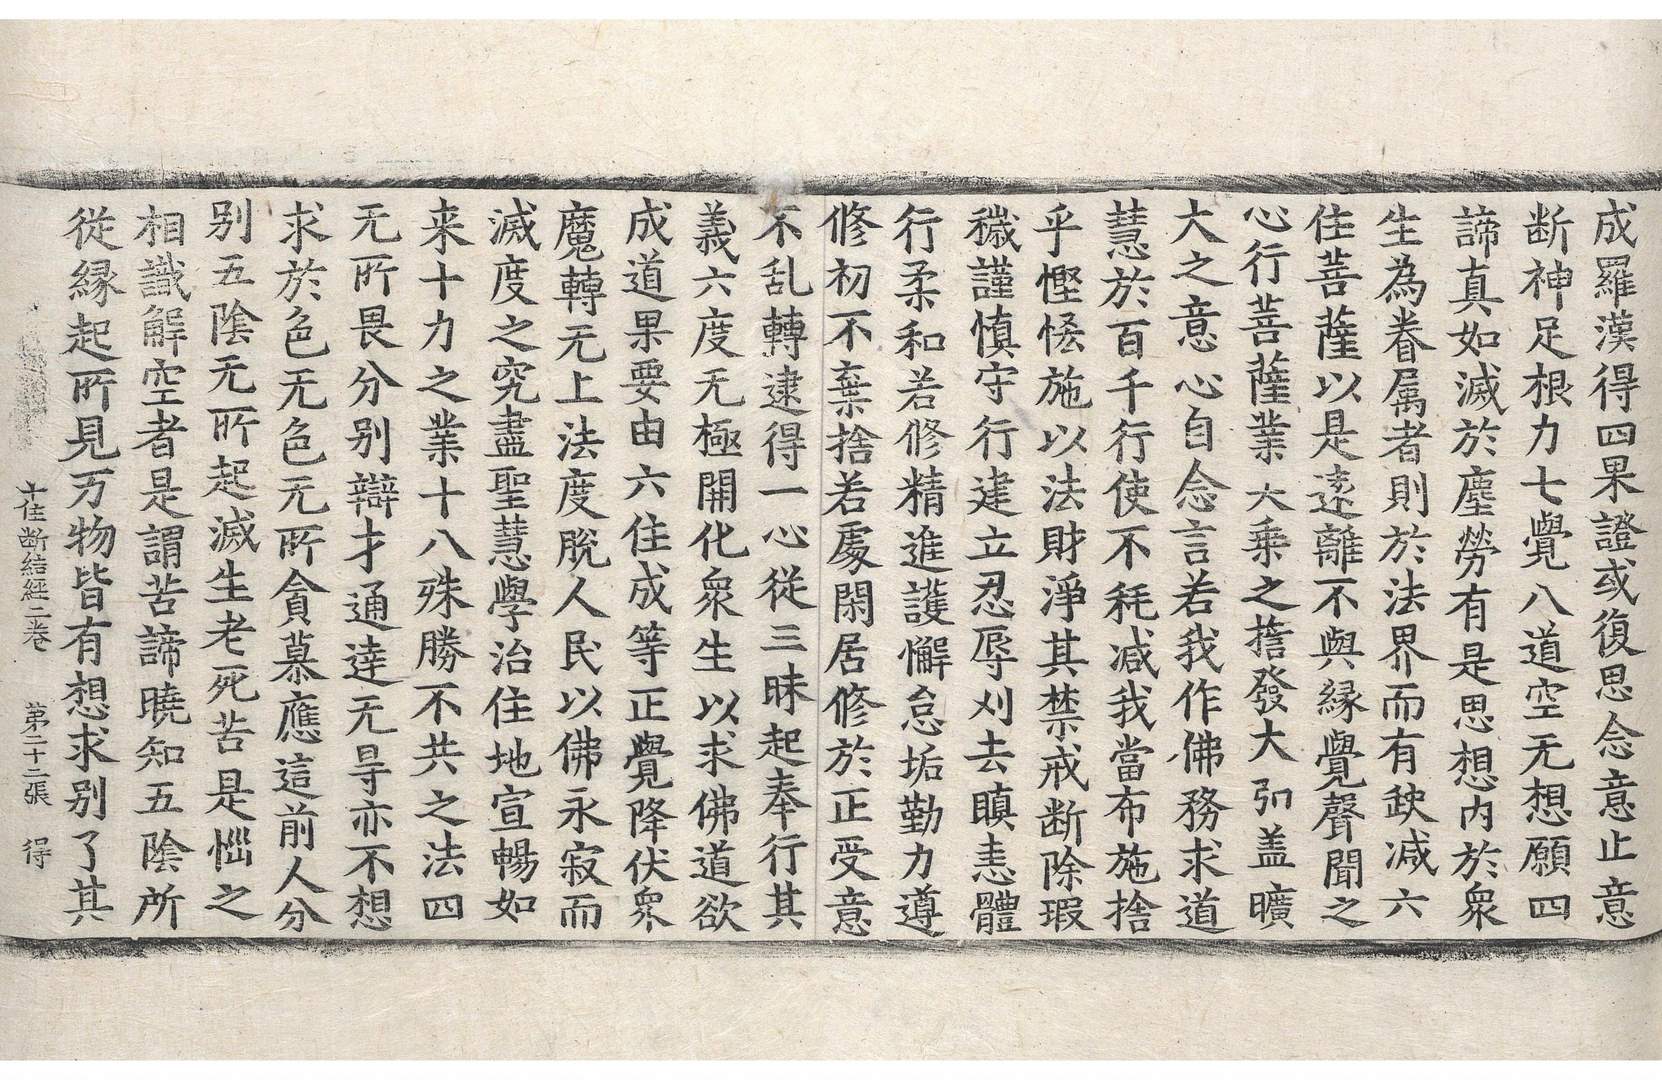 成羅漢得四果證或復思念意止意
断神足根力七覺八道空无想願四
諦真如滅於塵勞有是思想内於衆
生為眷属者則於法界而有𡙇减六
住菩薩以是遠離不與縁覺聲聞之
心行菩薩業大乗之擔發大𢎞盖曠
大之意心自念言若我作佛務求道
慧於百千行使不秏减我當布施捨
乎慳悋施以法財淨其禁戒断除瑕
穢謹慎守行建立忍辱刈去瞋恚體
行柔和若修精進護懈怠垢勤力遵
修初不棄捨若處閑居修於正受意
不乱轉逮得一心從三昧起奉行其
義六度无極開化衆生以求佛道欲
成道果要由六住成等正覺降伏衆
魔轉无上法度脫人民以佛永寂而
滅度之究盡聖慧學治住地宣暢如
来十力之業十八殊勝不共之法四
无所畏分别辯才通達无㝵亦不想
求於色无色无所貪慕應這前人分
别五陰无所起滅生老死苦是惱之
相識解空者是謂苦諦曉知五陰所
從縁起所見万物皆有想求别了其
十住断結經二卷 第二十二張 得